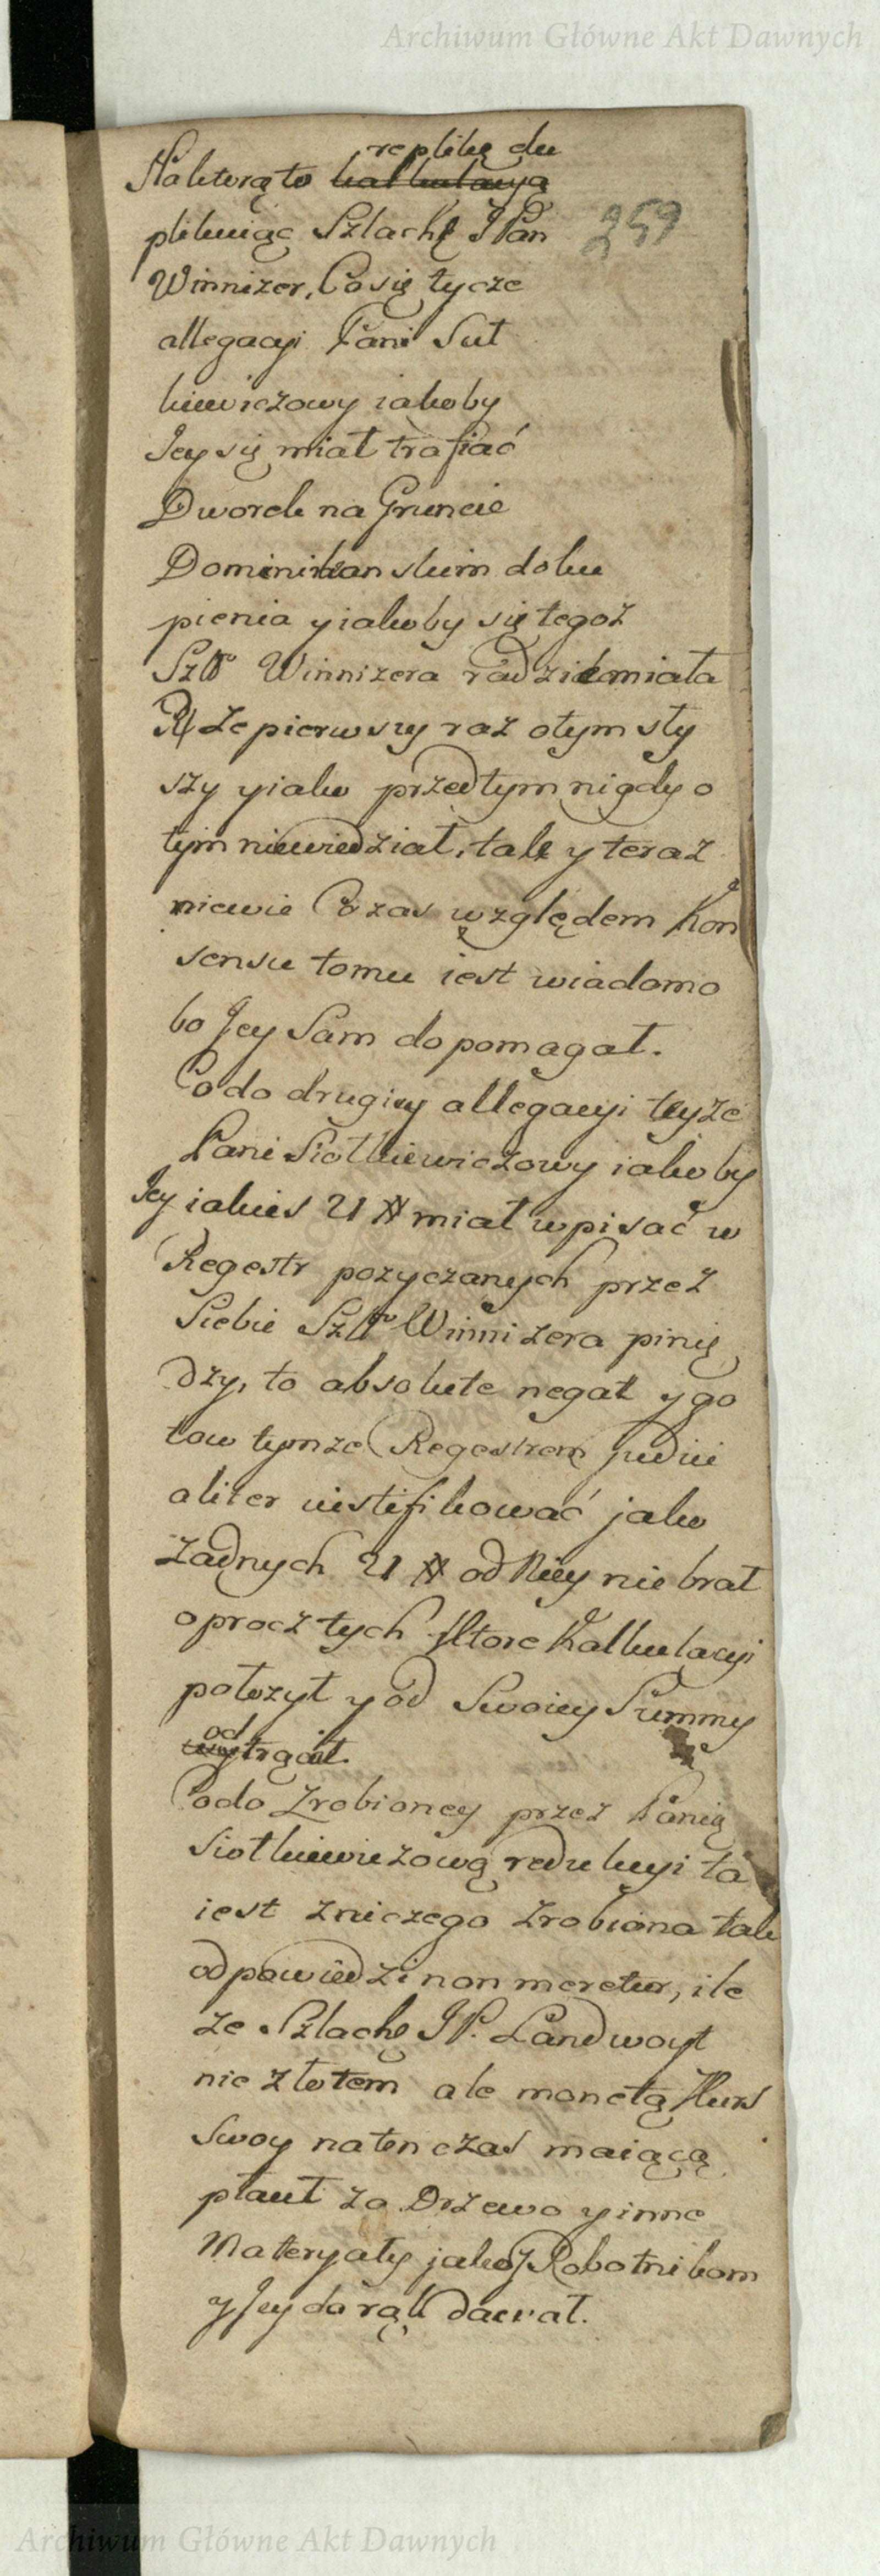 Archiwum Główne Akt Dawnych
replikę du
Naktorąto kalkulacyą
plikuiąc Szlachę JPan
259
Winnizer, Co się tycze
allegacyi Pani Sut
kiewiczowy iakoby
Jey się miał trafiać
Dworek na Gruncie
Dominikanskim doku
pienia y iakoby się tegoż
Winnizera radzić miała
Że pierwszy raz otym sły
szy y iako przedtym nigdy o
tym niewiedział, tak y teraz
niewie Co zas względem Kon
sensu tomu iest wiadomo
bo Jey Sam dopomagał.
Co do drugiey allegacyi teyże
Pani Siotkiewiczowy iakoby
Jey iakies 21 # miał wpisać w
Regestr pozyczanych przez
Siebie Winnizera pinię
dzy, to absolute negat y go
tow tymze Regestrem judici
aliter iustifikować jako
Żadnych 21 # od Niey nie brał
oprocz tych Ktore Kalkulacyi
położył y od Swoiey Summy
od
wytrącił.
Co do Zrobioney przez Panią
Siotkiewiczową redukcyi ta
iest zniczego zrobiona tak
odpowiedzi non meretur, ile
że Szlachę JP. Landwoyt
nie złotem ale monetą Kurs
swoy natenczas maiącą
płacił za Drzewo y inne
Materyały jako y Robotnikom
y Jey do rąk dawał.
Archiwum Główne Akt Dawnych